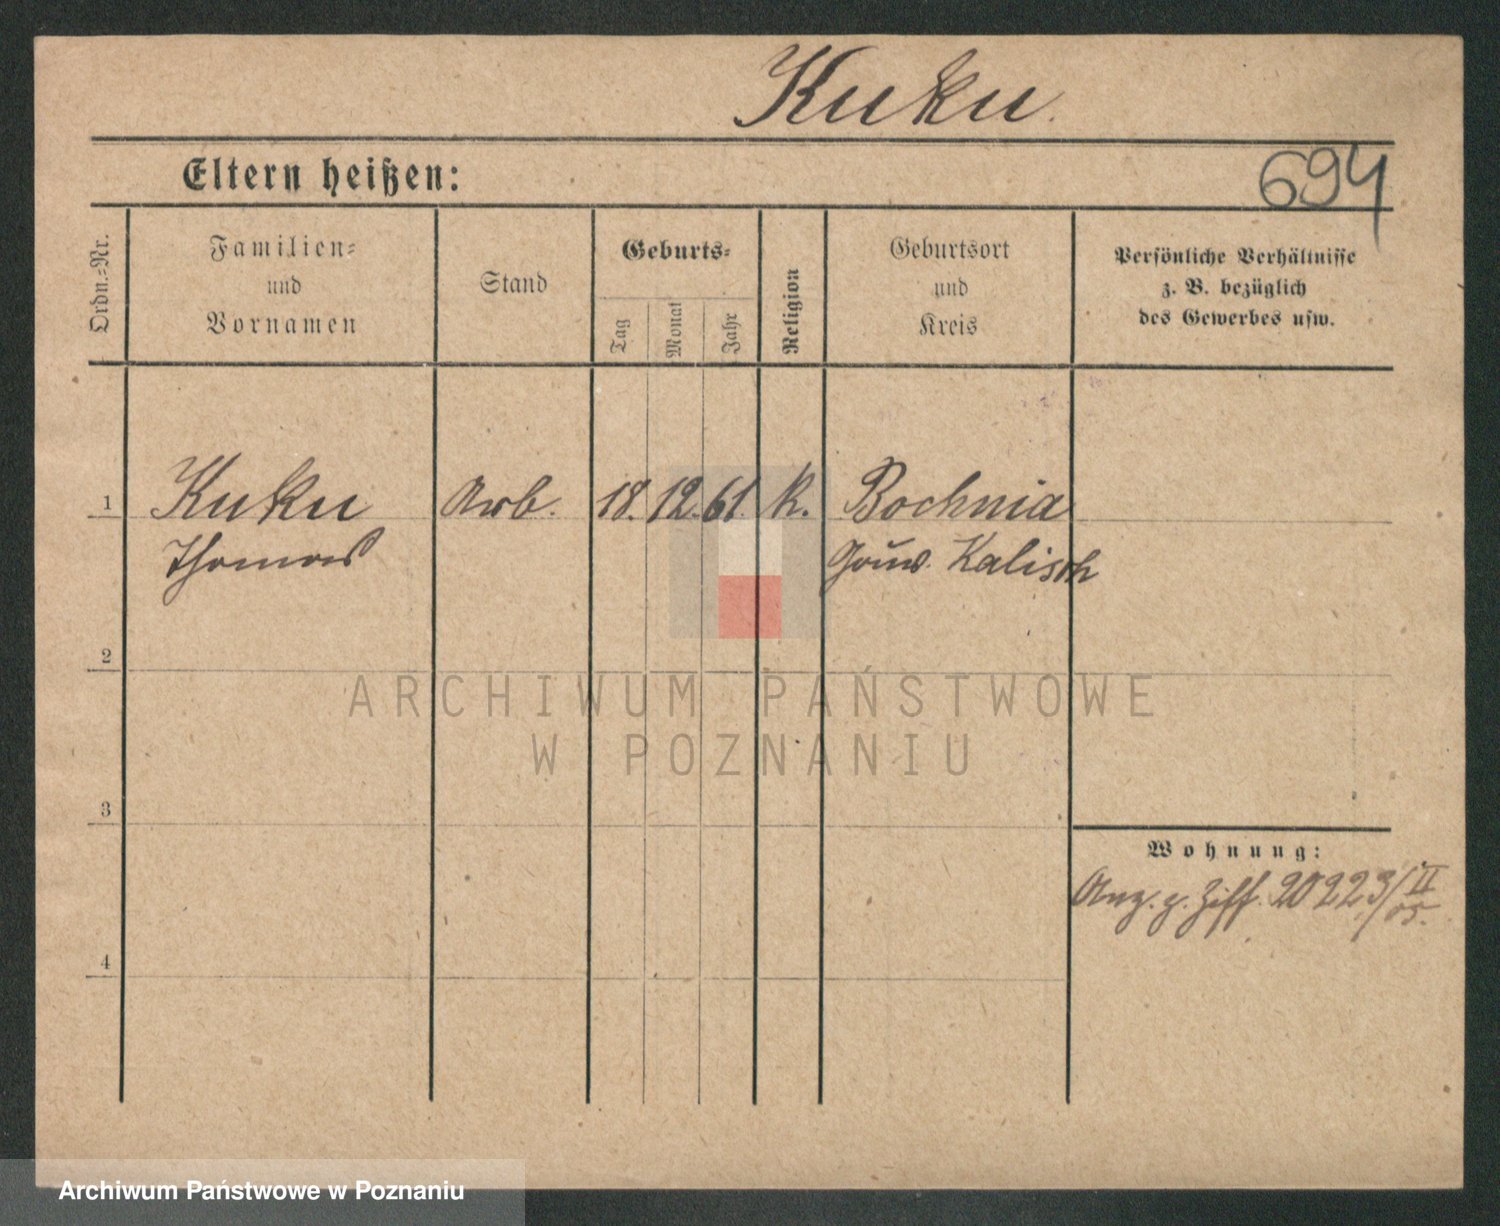 Kuku.
694
Eltern heißen:
Ordn.-Nr.
Familien-
und
Vornamen
Stand
Geburts-
Tag
Monat
Jahr
Religion
Geburtsort
und
Kreis
Persönliche Verhältnisse
z. B. bezüglich
des Gewerbes usw.
1 Kuku Arb. 18. 12. 61. k. Bochnia
Thomas Gouv. Kalisch
2
3
Wohnung:
Anz. z. Ziff. 20223/II
05.
4
ARCHIWUM PAŃSTWOWE
W POZNANIU
Archiwum Państwowe w Poznaniu